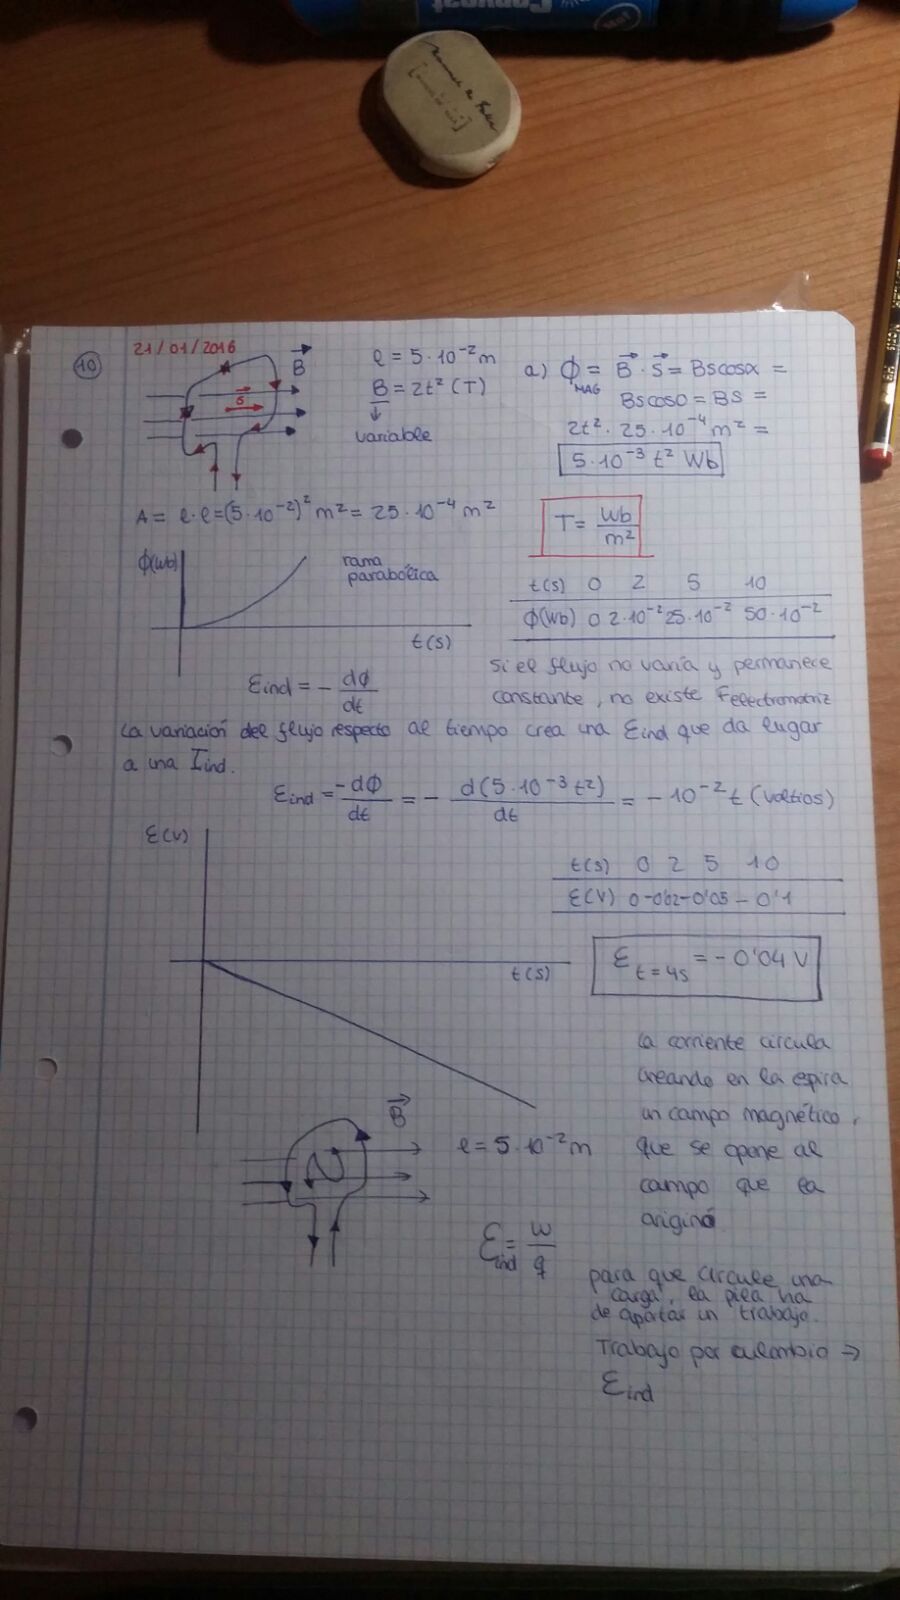 10
21/01/2016
B
S
e = 5·10⁻² m
B = 2t² (T)
variable
a) Φ = B · S = BScosα =
MAG
BScos0 = BS =
2t² · 25·10⁻⁴ m² =
5·10⁻³ t² Wb
A = e·e = (5·10⁻²)² m² = 25·10⁻⁴ m²
T = Wb/m²
Φ(Wb)
rama
parabólica
t(s)
t(s) 0 2 5 10
Φ(Wb) 0 2·10⁻² 25·10⁻² 50·10⁻²
εind = - dΦ/dt
Si el flujo no varía y permanece
constante, no existe Felectromotriz
La variación del flujo respecto al tiempo crea una εind que da lugar
a una Iind.
εind = -dΦ/dt = - d(5·10⁻³ t²)/dt = - 10⁻² t (voltios)
ε(V)
t(s)
t(s) 0 2 5 10
ε(V) 0 -0'02 -0'05 -0'1
ε t=4s = - 0'04 V
La corriente circula
creando en la espira
un campo magnético,
que se opone al
campo que la
originó
B
e = 5·10⁻² m
εind = W/q
para que circule una
carga, la pila ha
de aportar un trabajo.
Trabajo por culombio ⇒
εind